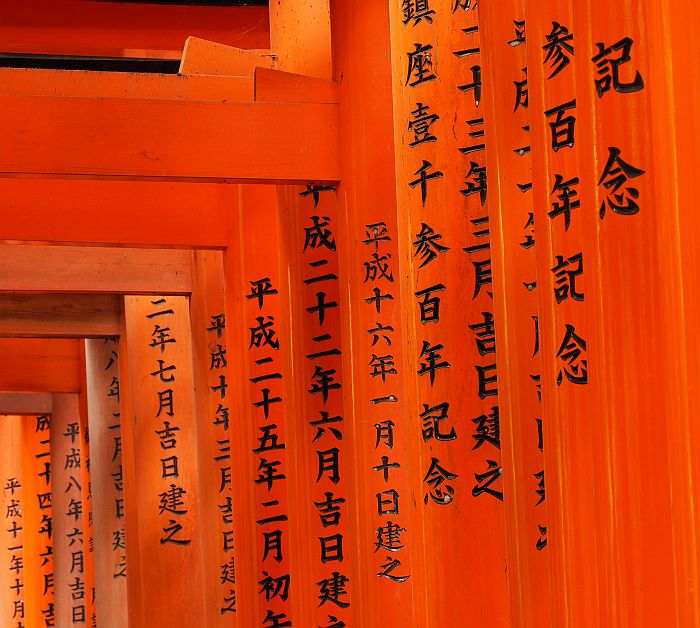 記念
参百年記念
二十三年三月吉日建之
鎮座壹千参百年記念
平成十六年一月十日建之
平成二十二年六月吉日建之
平成二十五年二月初午
平成十年三月吉日建之
二年七月吉日建之
八年二月吉日建之
平成八年六月吉日
成二十四年六月吉
平成十一年十月